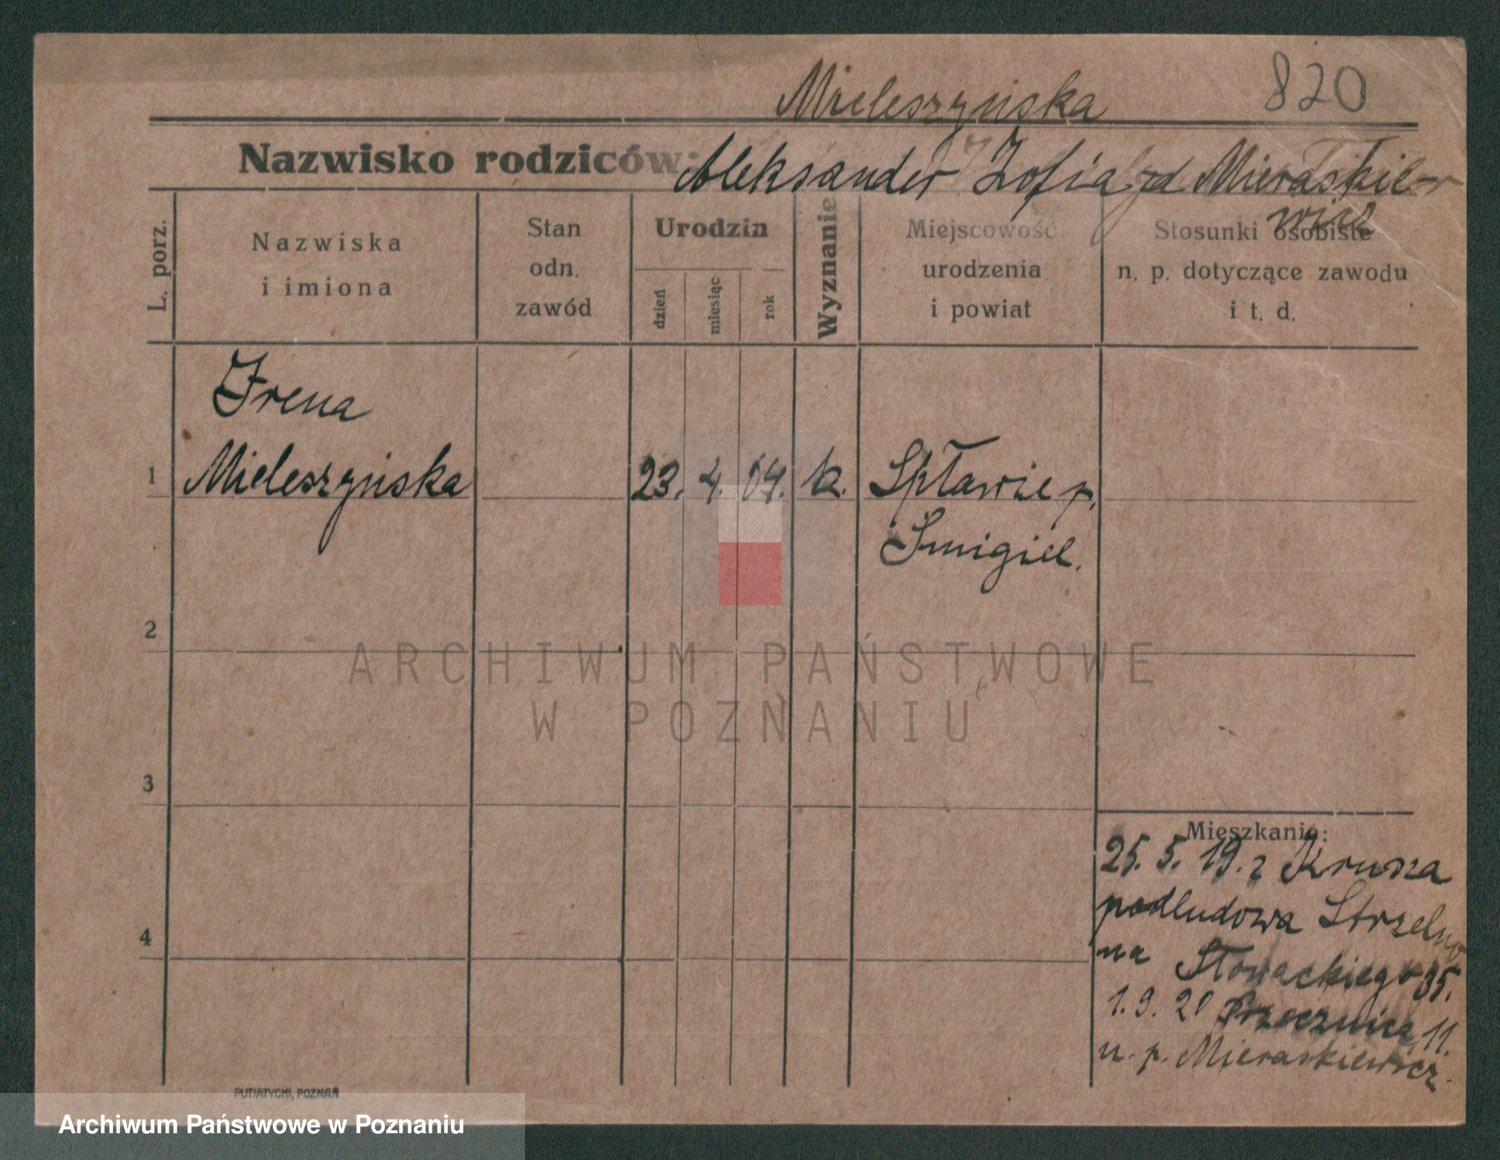 Mieleszyńska 820
Nazwisko rodziców: Aleksander Zofia zd Mieraskie-
wicz
L. porz.
Nazwiska
i imiona
Stan
odn.
zawód
Urodzin
dzień
miesiąc
rok
Wyznanie
Miejscowość
urodzenia
i powiat
Stosunki osobiste
n. p. dotyczące zawodu
i t. d.
Irena
1 Mieleszyńska 23. 4. 04. k. Spławie p.
Śmigiel.
2
ARCHIWUM PAŃSTWOWE
W POZNANIU
3
4
Mieszkanie:
25. 5. 19. z Krusza
podludowa Strzelno
na Słowackiego 35.
1. 9. 20 Przecznica 11.
u. p. Mieraskiewicz.
PUTIATYCKI, POZNAŃ
Archiwum Państwowe w Poznaniu